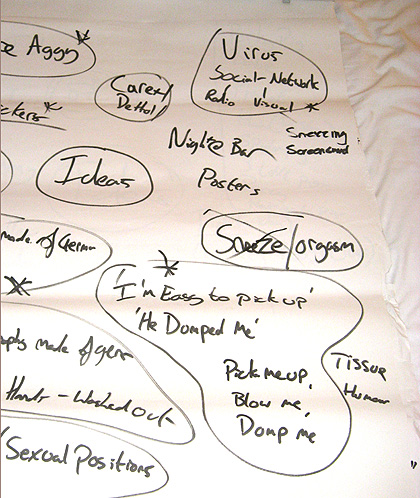 Aggy
Virus
Social-Network
Radio Visual
Carex/
Dettol
ckers
Nightze Bar
Sneezing
Screensaver
Ideas
Posters
made of Germ
Sneeze/orgasm
'I'm Easy to pick up'
'He Dumped Me'
Pick me up,
Blow me,
Dump me
Tissue
Humour
made of germ
Hands - Washed out
Sexual Positions
"